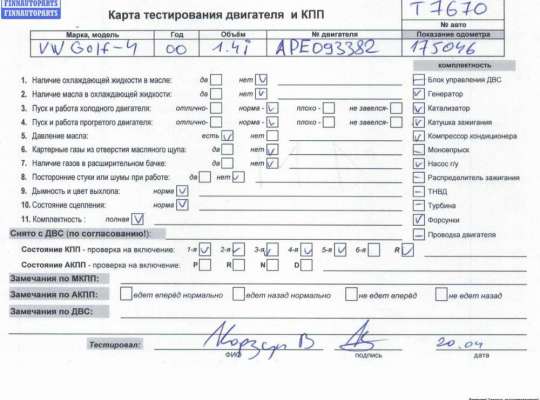 FINNAUTOPARTS
FINNAUTOPARTS
Карта тестирования двигателя и КПП
T7670
№ авто
Марка, модель Год Объём № двигателя Показание одометра
VW Golf-4 00 1.4i APE093382 175046
комплектность
1. Наличие охлаждающей жидкости в масле: да нет
2. Наличие масла в охлаждающей жидкости: да нет
3. Пуск и работа холодного двигателя: отлично- норма - плохо - не завелся-
4. Пуск и работа прогретого двигателя: отлично- норма - плохо - не завелся-
5. Давление масла: есть нет
6. Картерные газы из отверстия масляного щупа: да нет
7. Наличие газов в расширительном бачке: да нет
8. Посторонние стуки или шумы при работе: да нет
9. Дымность и цвет выхлопа: норма
10. Состояние сцепления: норма
11. Комплектность : полная
Блок управления ДВС
Генератор
Катализатор
Катушка зажигания
Компрессор кондиционера
Моновпрыск
Насос г/у
Распределитель зажигания
ТНВД
Турбина
Форсунки
Проводка двигателя
Снято с ДВС (по согласованию!):
Состояние КПП - проверка на включение: 1-я 2-я 3-я 4-я 5-я 6-я R
Состояние АКПП - проверка на включение: P R N D
Замечания по МКПП:
Замечания по АКПП: едет вперёд нормально едет назад нормально не едет вперёд не едет назад
Замечания по ДВС:
Тестировал: В 20.04
ФИО подпись дата